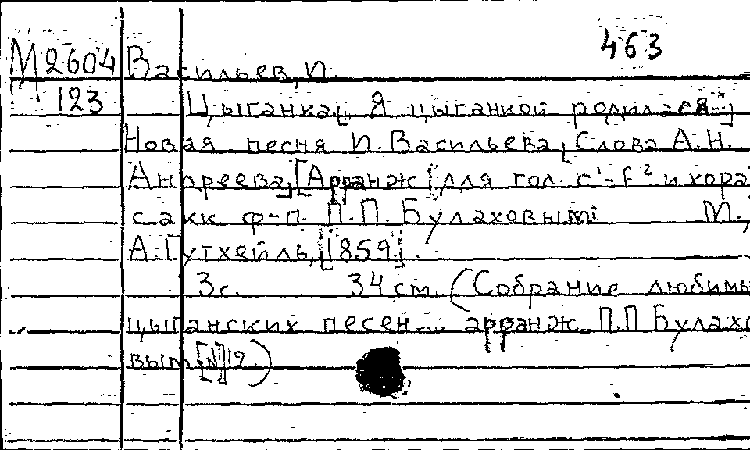 463
М2604 Васильев, И.
123 Цыганка[„Я цыганкой родилася"]
Новая песня И. Васильева, Слова А.Н.
Андреева, [Арранж.] для гол. c¹-f² и хора
с акк ф-п. П.П. Булаховым М.,
А. Гутхейль, [1859].
3с. 34 см. (Собрание любимы
цыганских песен... арранж. П.П Булахо
вым [N]12)